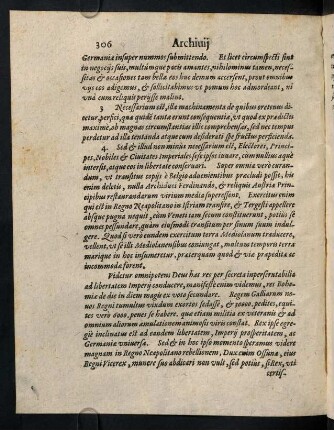 306 Archiuij
Germania insuper nummos submittendo. Et licet circumspecti sint
in negocijs suis, multúmque pacis amantes, nihilominus tamen, neces-
sitas & occasiones tam bella eos hoc demum accersent, prout omnibus
vijs eos adigimus, & sollicitabimus vt pomum hoc admordeant, ni
vnà cum reliquis perijsse malint.
3 Necessarium est, illa machinamenta de quibus oretenus di-
ctur, perfici, qua quidè tanta erunt consequentia, vt quod ex prædictis
maximè, ob magnas circumstantias illis comprehensas, sed nec tempus
perdetur ad illa tentanda atque cum desiderati spe fructus perficienda.
4. Sed & illud non minus necessarium est, Electores, Princi-
pes, Nobiles & Ciuitates Imperiales sese ipsos iuuare, cum multius aquè
intersit, atque eos in libertate conseruari. Super omnia verò curan-
dum, vt transitus copijs è Belgio aduentantibus præcludi possit, his
enim deletis, nulla Archiduci Ferdinando, & reliquis Austriæ Prin-
cipibus restaurandarum virium media superessent. Exercitus enim
qui est in Regno Neapolitano in Istriam transire, & Tergesti appellere
absque pugna nequit, cum Veneti tam secum constituerunt, potiùs se
omnes pessundare, quàm eiusmodi transitum per sinum suum indul-
gere. Quod si verò eundem exercitum terra Mediolanum traducere
vellent, vt se illis Mediolanensibus coniungat, multum temporis terra
marique in hoc insumeretur, præterquam quòd & viæ præpedita ac
incommoda forent.
Videtur omnipotens Deus has res per secreta imperscrutabilia
ad libertatem Imperij conducere, manifestè enim videmus, res Bohe-
miæ de die in diem magis ex voto secundare. Regem Galliarum no-
uus Regni tumultus viudum exortos sedasse, & 60000. pedites, equi-
tes verò 6000. penes se habere, qua etiam militia ex veteranis & ad
omnium aliorum amulationem animosis viris constat. Rex ipse egre-
gie inclinatus est ad eandem libertatem, Imperij prosperitatem, ac
Germaniæ vniuersæ. Sed & in hoc ipso momento speramus videre
magnam in Regno Neapolitano rebellionem, Dux enim Ossuna, eius
Regni Vicerex, munere suo abdicari non vult, sed potiùs, si Rex, vti
certis-